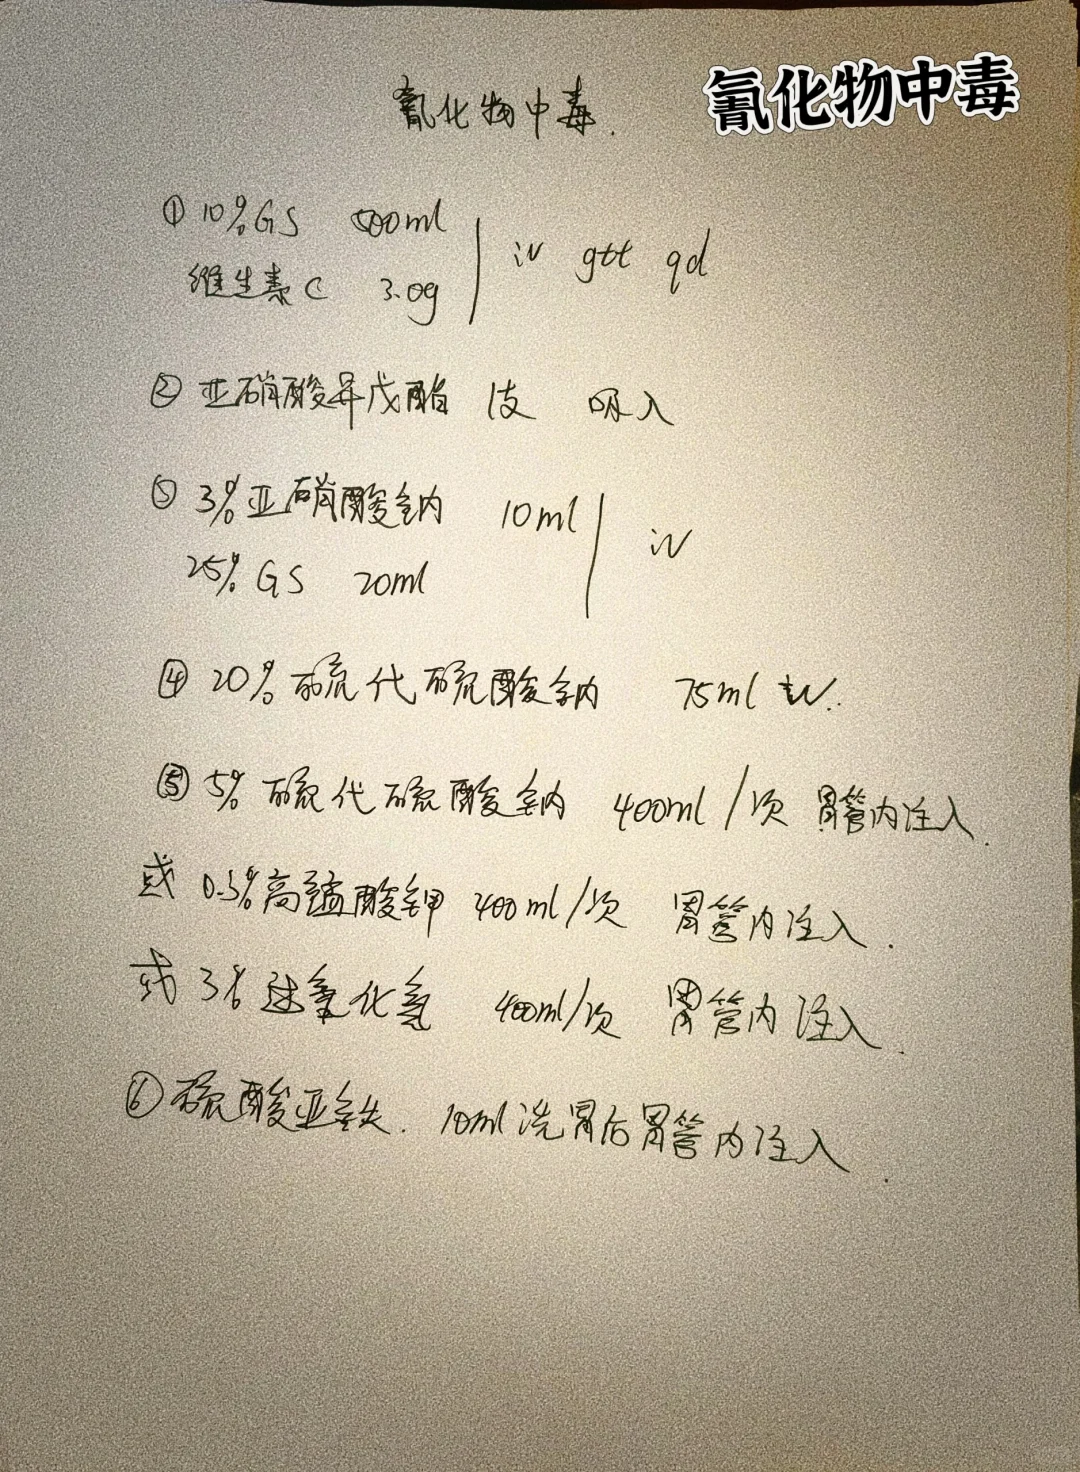 氰化物中毒.
氰化物中毒
① 10%GS 500ml
维生素C 3.0g
iv gtt qd
② 亚硝酸异戊酯 1支 吸入
③ 3%亚硝酸钠 10ml
25%GS 20ml
iv
④ 20%硫代硫酸钠 75ml iv.
⑤ 5%硫代硫酸钠 400ml/次 胃管内注入.
或 0.5%高锰酸钾 400ml/次 胃管内注入.
或 3%过氧化氢 400ml/次 胃管内注入.
⑥ 硫酸亚铁. 10ml洗胃后胃管内注入.